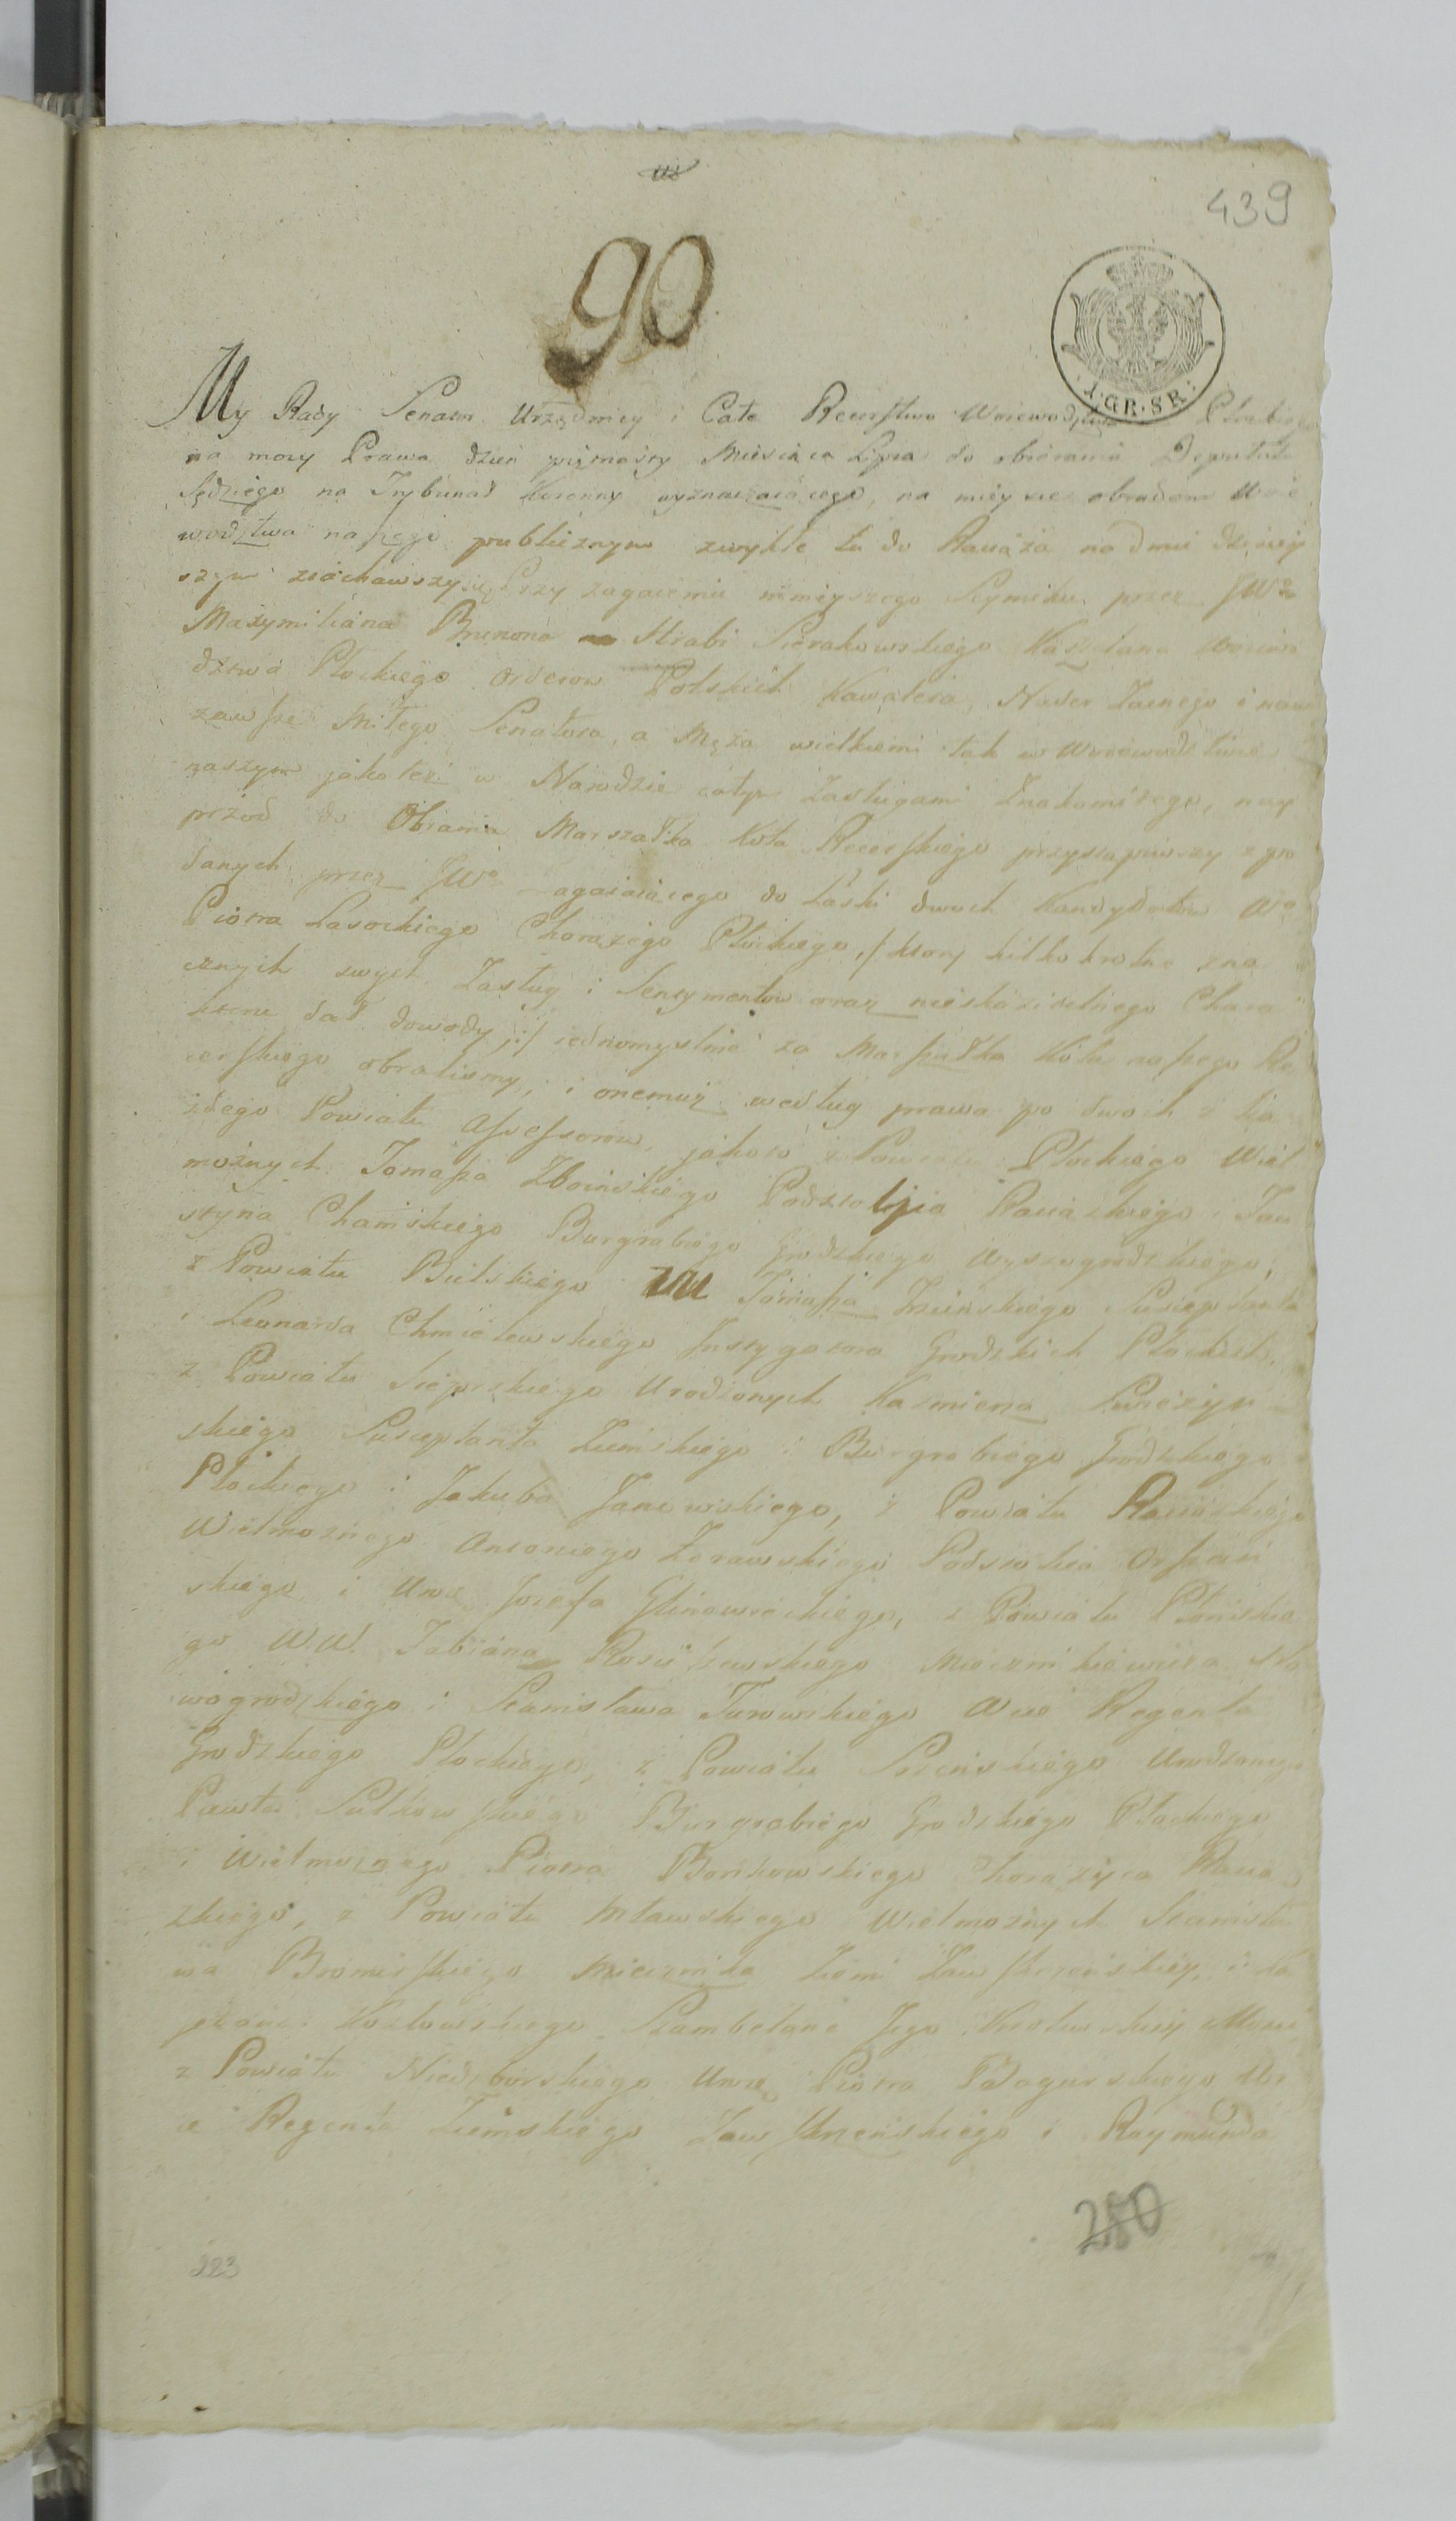 439
90
I·GR·SR:
My Rady Senatu Urzędnicy i Całe Rycerstwo Woiewodztwa Płockiego
na mocy Prawa dzień piętnasty Miesiąca Lipca do obierania Deputata
Sędziego na Trybunał Koronny wyznaczaiącego, na mieysce obradom Woie
wodztwa naszego publicznym zwykłe tu do Raciąża na dniu dzisiey
szym ziachawszy się Przy zagaieniu ninieyszego Seymiku przez JWo
Maxymiliana Brunona Hrabi Sierakowskiego Kasztelana Woiewo
dztwa Płockiego Orderow Polskich Kawalera, Nader Zacnego i nam
zawsze Miłego Senatora, a Męża wielkiemi tak w Woiewodztwie
naszym jako też w Narodzie całym Zasługami Znakomitego, nay
przod do Obrania Marszałka Koła Rycerskiego przystąpiwszy z po
danych przez JWo Zagaiaiącego do Laski dwoch Kandydatow Wo
Piotra Lasockiego Chorązego Płockiego, /: ktory kilkokrotne zna
cznych swych Zasług i Sentymentow oraz nieskazitelnego Chara
kteru dał dowody :/ iednomyslnie za Marszałka Koła naszego Ry
cerskiego obraliśmy, i onemuż według prawa po dwoch z ka
żdego Powiatu Assessorow, jakoto z Powiatu Płockiego Wiel
możnych Tomasza Zboinskiego Podstolica Raciązkiego i Jan
Chamskiego Burgrabiego Grodzkiego Wyszogrodzkiego,
z Powiatu Bielskiego Tomasza Susceptanta
i Leonarda Chmielewskiego Instygatora Grodzkich Płockich,
z Powiatu Sierpskiego Urodzonych Kazmierza
skiego Susceptanta Ziemskiego i Burgrabiego Grodzkiego
Płockiego i Jakuba Janowskiego, z Powiatu Raciązkiego
Wielmoznego Antoniego Zorawskiego Podstolica
skiego i Uro Jozefa Glinowieckiego, z Powiatu Płonskie
go W.W. Fabiana Rosciszewskiego Miecznikiewicza No
wogrodzkiego i Stanisława Turowskiego Wice Regenta
Grodzkiego Płockiego, z Powiatu Srenskiego Urodzonego
Pawła Sulkowskiego Burgrabiego Grodzkiego Płockiego
i Wielmoznego Piotra Bonkowskiego Chorązyca Racią
zkiego, z Powiatu Mławskiego Wielmoznych Stanisła
wa Bromirskiego Miecznika Ziemi Zawskrzenskiey, i
Kozłowskiego Szambelana Jego Krolewskiey Mosci
z Powiatu Niedzborskiego Uro Piotra Bogurskiego Wi
ce Regenta Ziemskiego Zawskrzenskiego i Raymunda
250
223